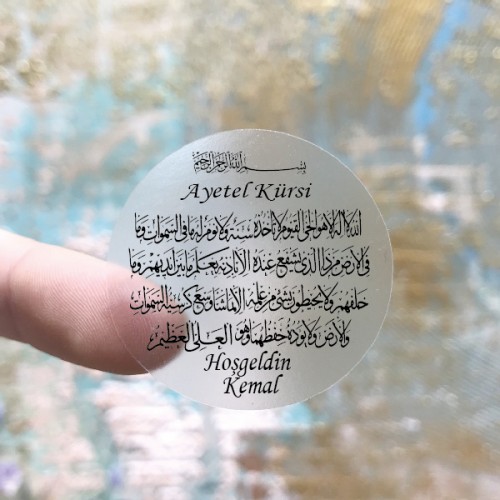 بسم الله الرحمن الرحيم
Ayetel Kürsi
الله لا إله إلا هو الحي القيوم لا تأخذه سنة ولا نوم له ما في السموات وما
في الأرض من ذا الذي يشفع عنده إلا بإذنه يعلم ما بين أيديهم وما
خلفهم ولا يحيطون بشيء من علمه إلا بما شاء وسع كرسيه السموات
والأرض ولا يؤده حفظهما وهو العلي العظيم
Hoşgeldin
Kemal